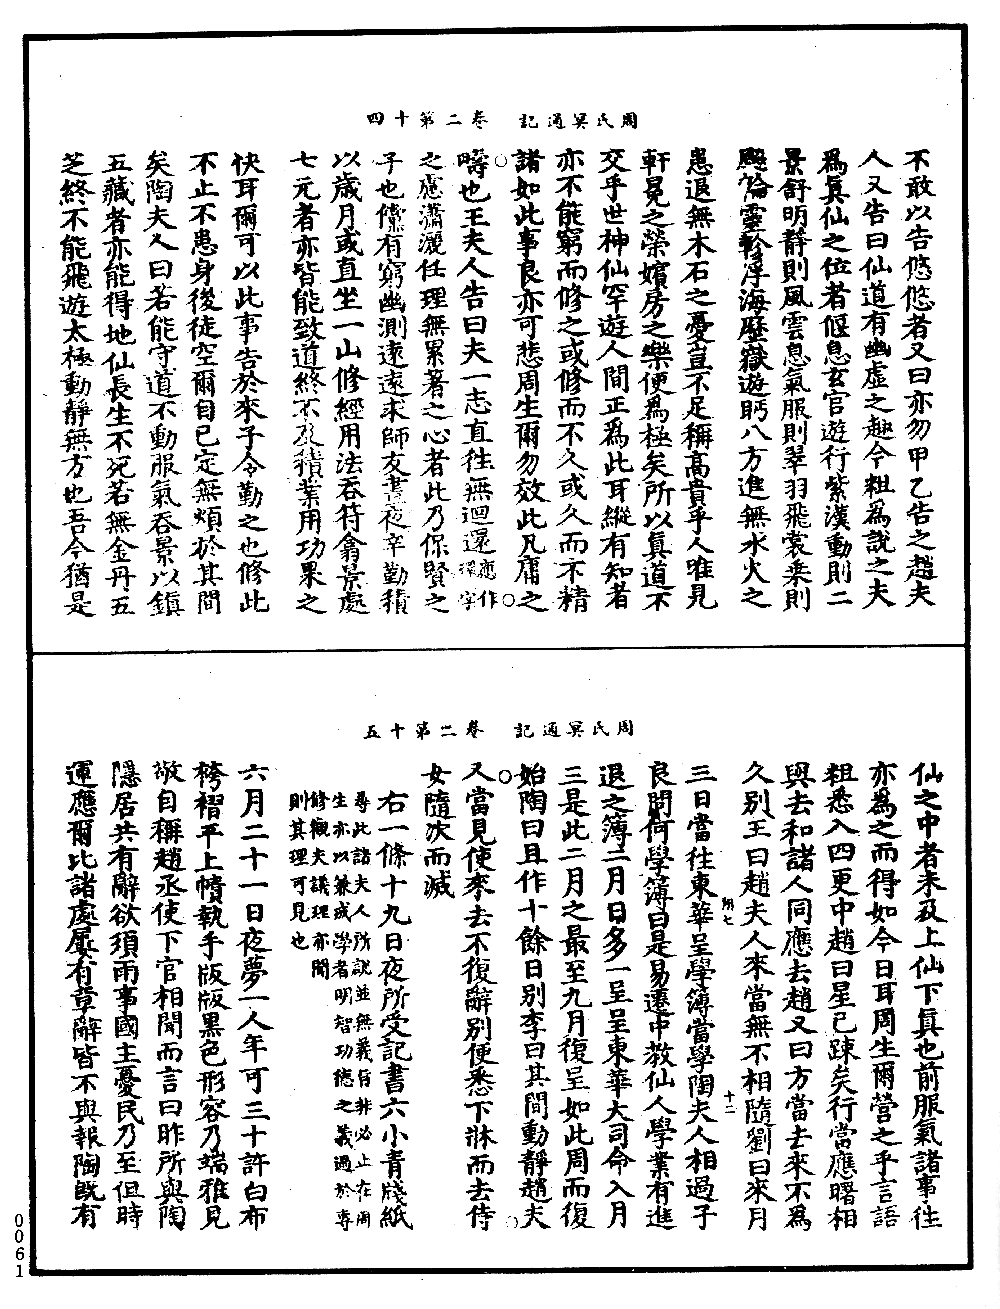 周氏冥通記　卷二第十四
不敢以告悠悠者又曰亦勿甲乙告之趙夫
人又告曰仙道有幽虛之趣今粗為說之夫
為真仙之位者偃息玄宮遊行紫漢動則二
景舒明靜則風雲息氣服則翠羽飛裳乘則
飈輪靈軨浮海歷嶽遊眄八方進無水火之
患退無木石之憂豈不足稱高貴乎人唯見
軒冕之榮嬪房之樂便為極矣所以真道不
交乎世神仙罕遊人間正為此耳縱有知者
亦不能窮而修之或修而不久或久而不精
諸如此事良亦可悲周生爾勿效此凡庸之
疇也王夫人告曰夫一志直往無迴還應作擇字
之慮瀟灑任理無累著之心者此乃保賢之
子也儻有窮幽測遠遠求師友晝夜辛勤積
以歲月或直坐一山修經用法吞符翕景處
七元者亦皆能致道終不及積業用功果之
快耳爾可以此事告於來子令勤之也修此
不止不患身後徒空爾自已定無煩於其間
矣陶夫人曰若能守道不動服氣吞景以鎮
五藏者亦能得地仙長生不死若無金丹五
芝終不能飛遊太極動靜無方也吾今猶是
周氏冥通記　卷二第十五
仙之中者未及上仙下真也前服氣諸事往
亦為之而得如今日耳周生爾營之乎言語
粗悉入四更中趙曰星已踈矣行當應曙相
與去和諸人同應去趙又曰方當去來不為
久別王曰趙夫人來當無不相隨劉曰來月
三日當往東華呈學簿當學陶夫人相過子
良問何學簿曰是易遷中教仙人學業有進
退之簿二月日多一呈呈東華大司命入月
三是此二月之最至九月復呈如此周而復
始陶曰且作十餘日別李曰其間動靜趙夫
又當見使李去不復辭別便悉下牀而去侍
女隨次而滅
右一條十九日夜所受記書六小青牋紙
尋此諸夫人所說並無義旨非必止在周
生亦以兼戒學者明智功德之義過於專
修觀夫議理亦聞
則其理可見也
六月二十一日夜夢一人年可三十許白布
袴褶平上幘執手版版黑色形容乃端雅見
敬自稱趙丞使下官相聞而言曰昨所與陶
隱居共有辭欲須雨事國主憂民乃至但時
運應爾比諸處屢有章辭皆不與報陶既有
附七
十二
0061